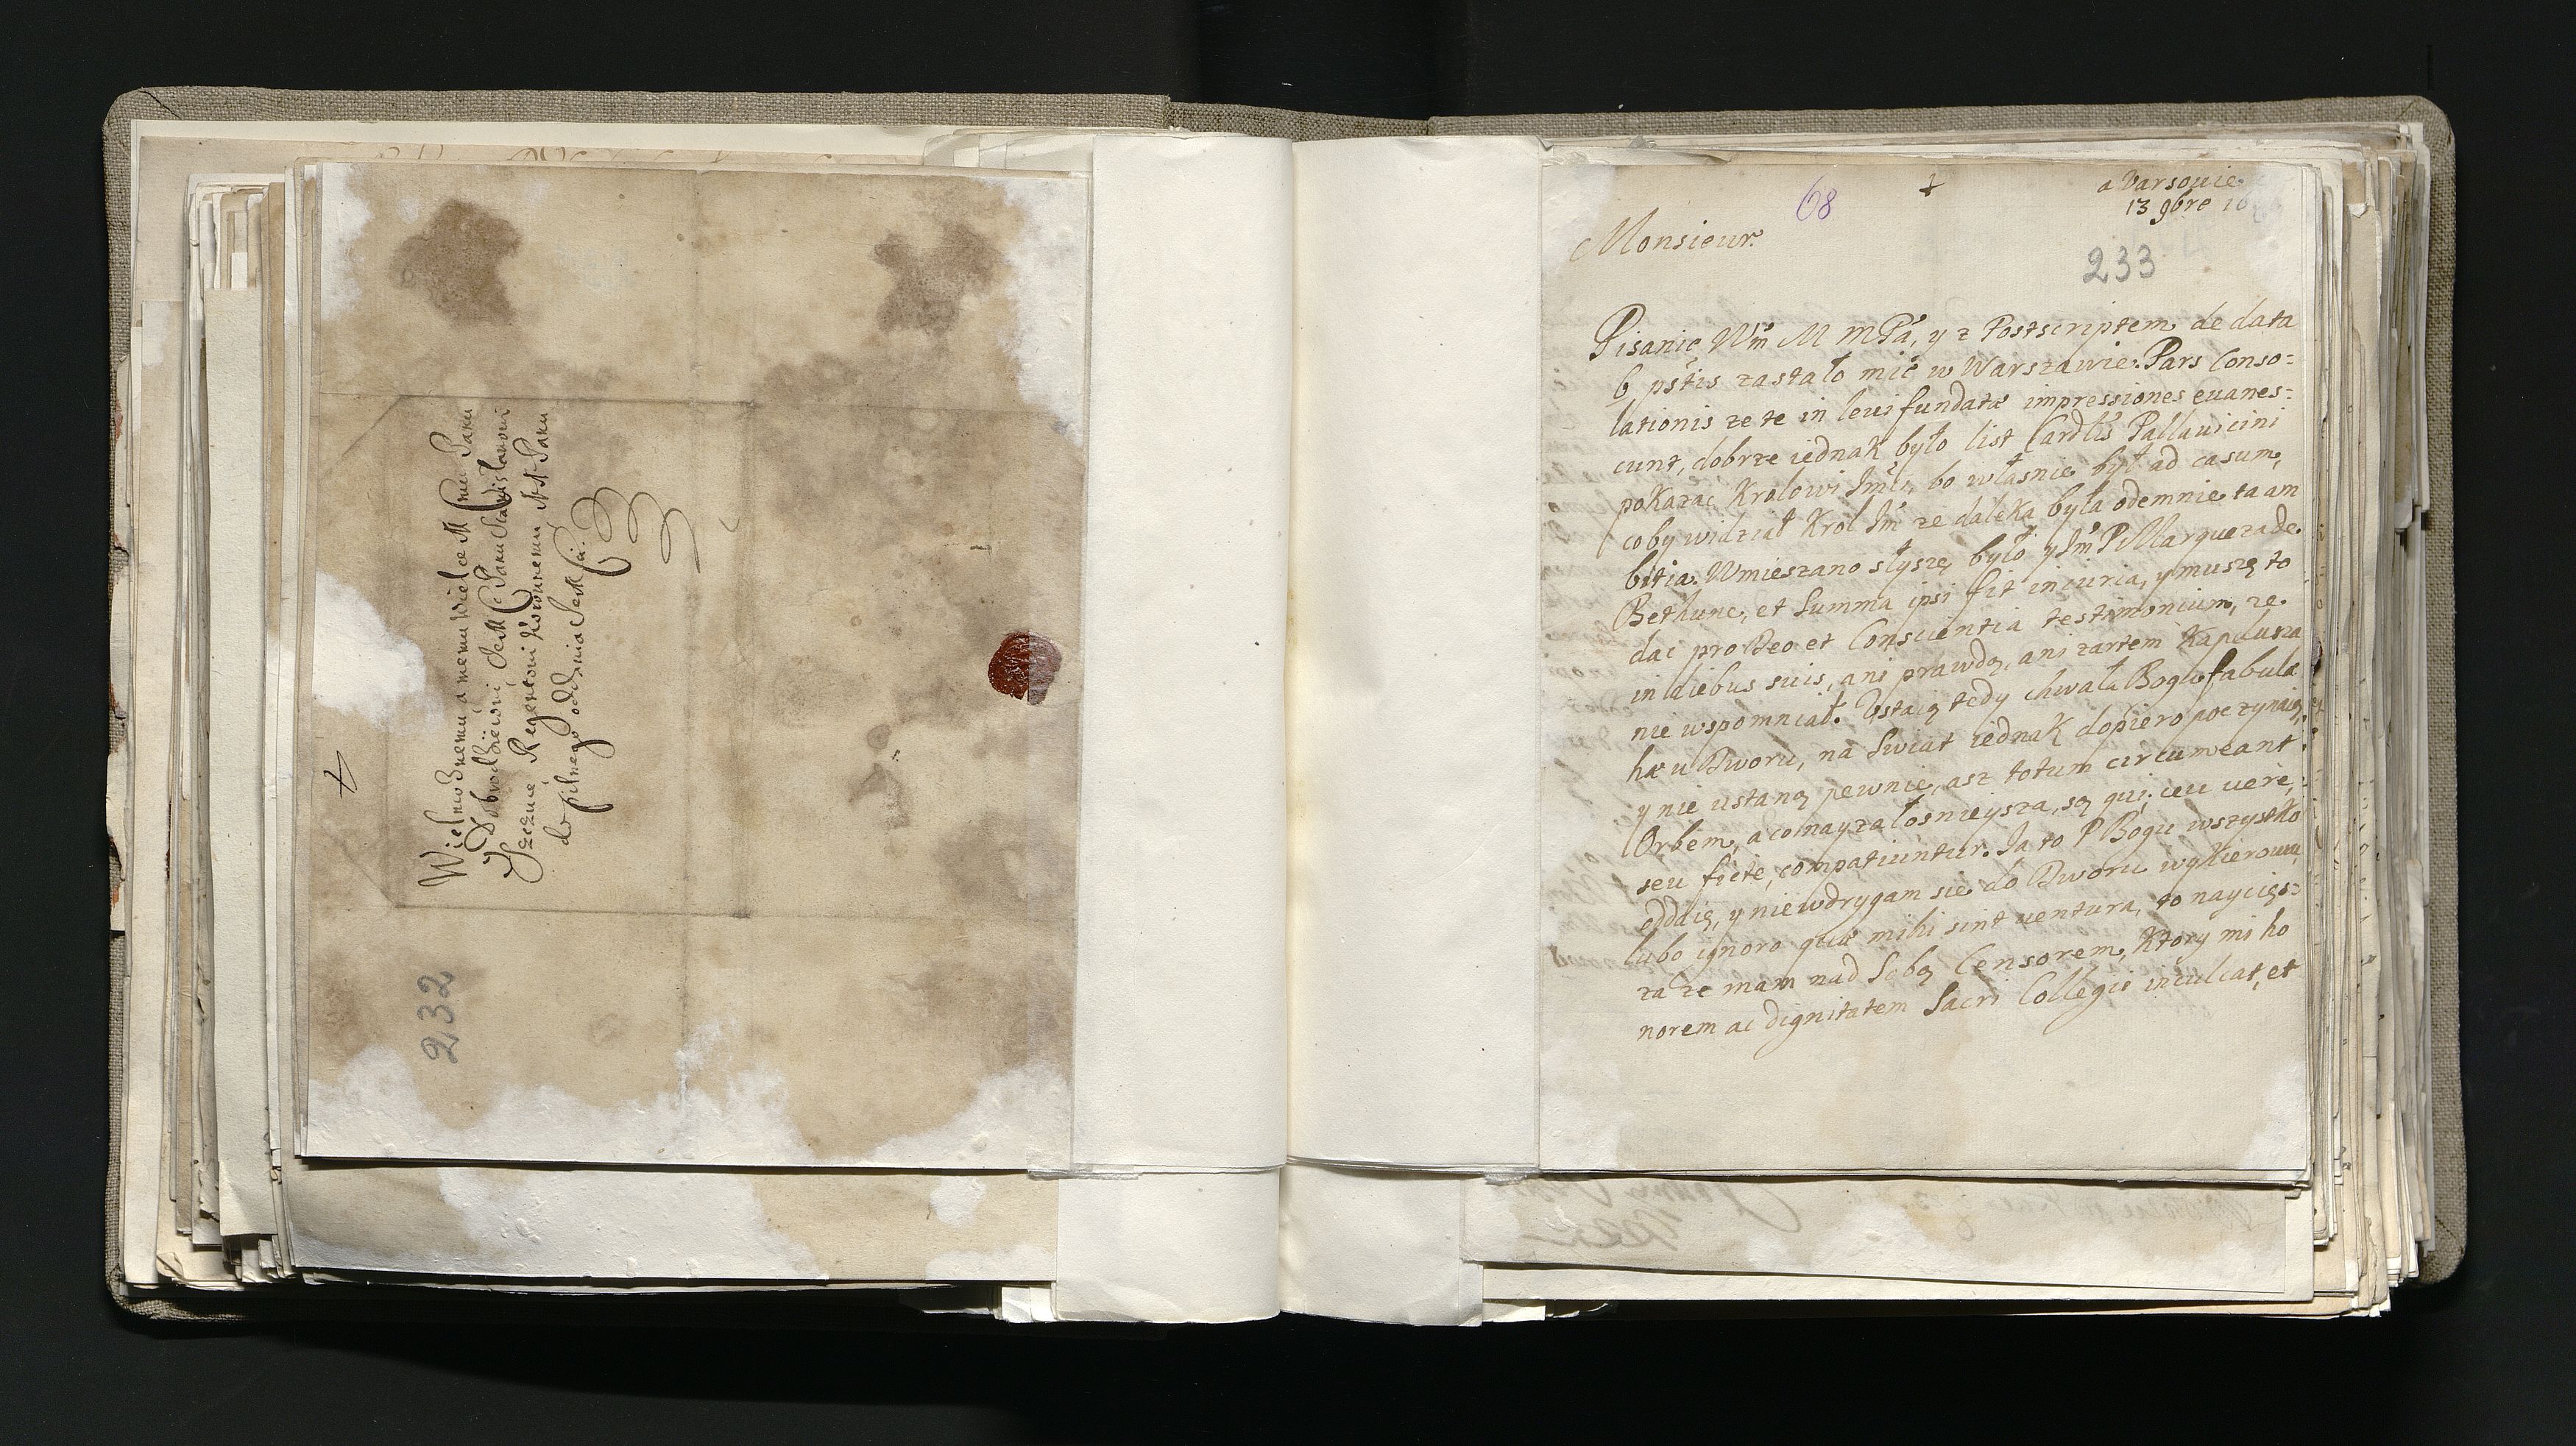 232
+
Wielmożnemu, a memu Wielce M Panu
Dobrodzieiowi, Jem P Panu Stanisławowi
Szczuce Regentowi Koronnemu MM Panu
do pilnego oddania
68
+
a Varsovie
13 9bre 16
233
Monsieur.
Pisanie Wm M mPa, y z Postscriptem de data
6 pntis zastało mie w Warszawie. Pars Conso=
lationis ze te in levi fundatæ impressiones evanes=
cunt, dobrze iednak było list Cardlis Pallavicini
pokazać Krolowi Jmci, bo własnie był ad casum,
coby widział Krol Jm ze daleka była odemnie ta am
bitia. Wmieszano słyszę było y Jm P Marqueza de
Bethune, et summa ipsi fit iniuria, y muszę to
dac pro Deo et Conscientia testimonium, ze
in diebus suis, ani prawdą, ani zartem Kapelusza
nie wspomniał. Ustaią tedy chwała Bogu fabulæ
hæ u Dworu, na Swiat iednak dopiero poczynaią,
y nie ustaną pewnie, asz totum circumeant
Orbem, a co nayzałosnieysza, są qui, ceu vere,
seu ficte, compatiuntur. Ja to P Bogu wszystko
oddaię, y niewdrygam sie do Dworu
lubo ignoro quæ mihi sint ventura, to naycięs=
za ze mam nad Sobą Censorem, Ktory mi ho
norem ac dignitatem Sacri Collegii inculcat, et